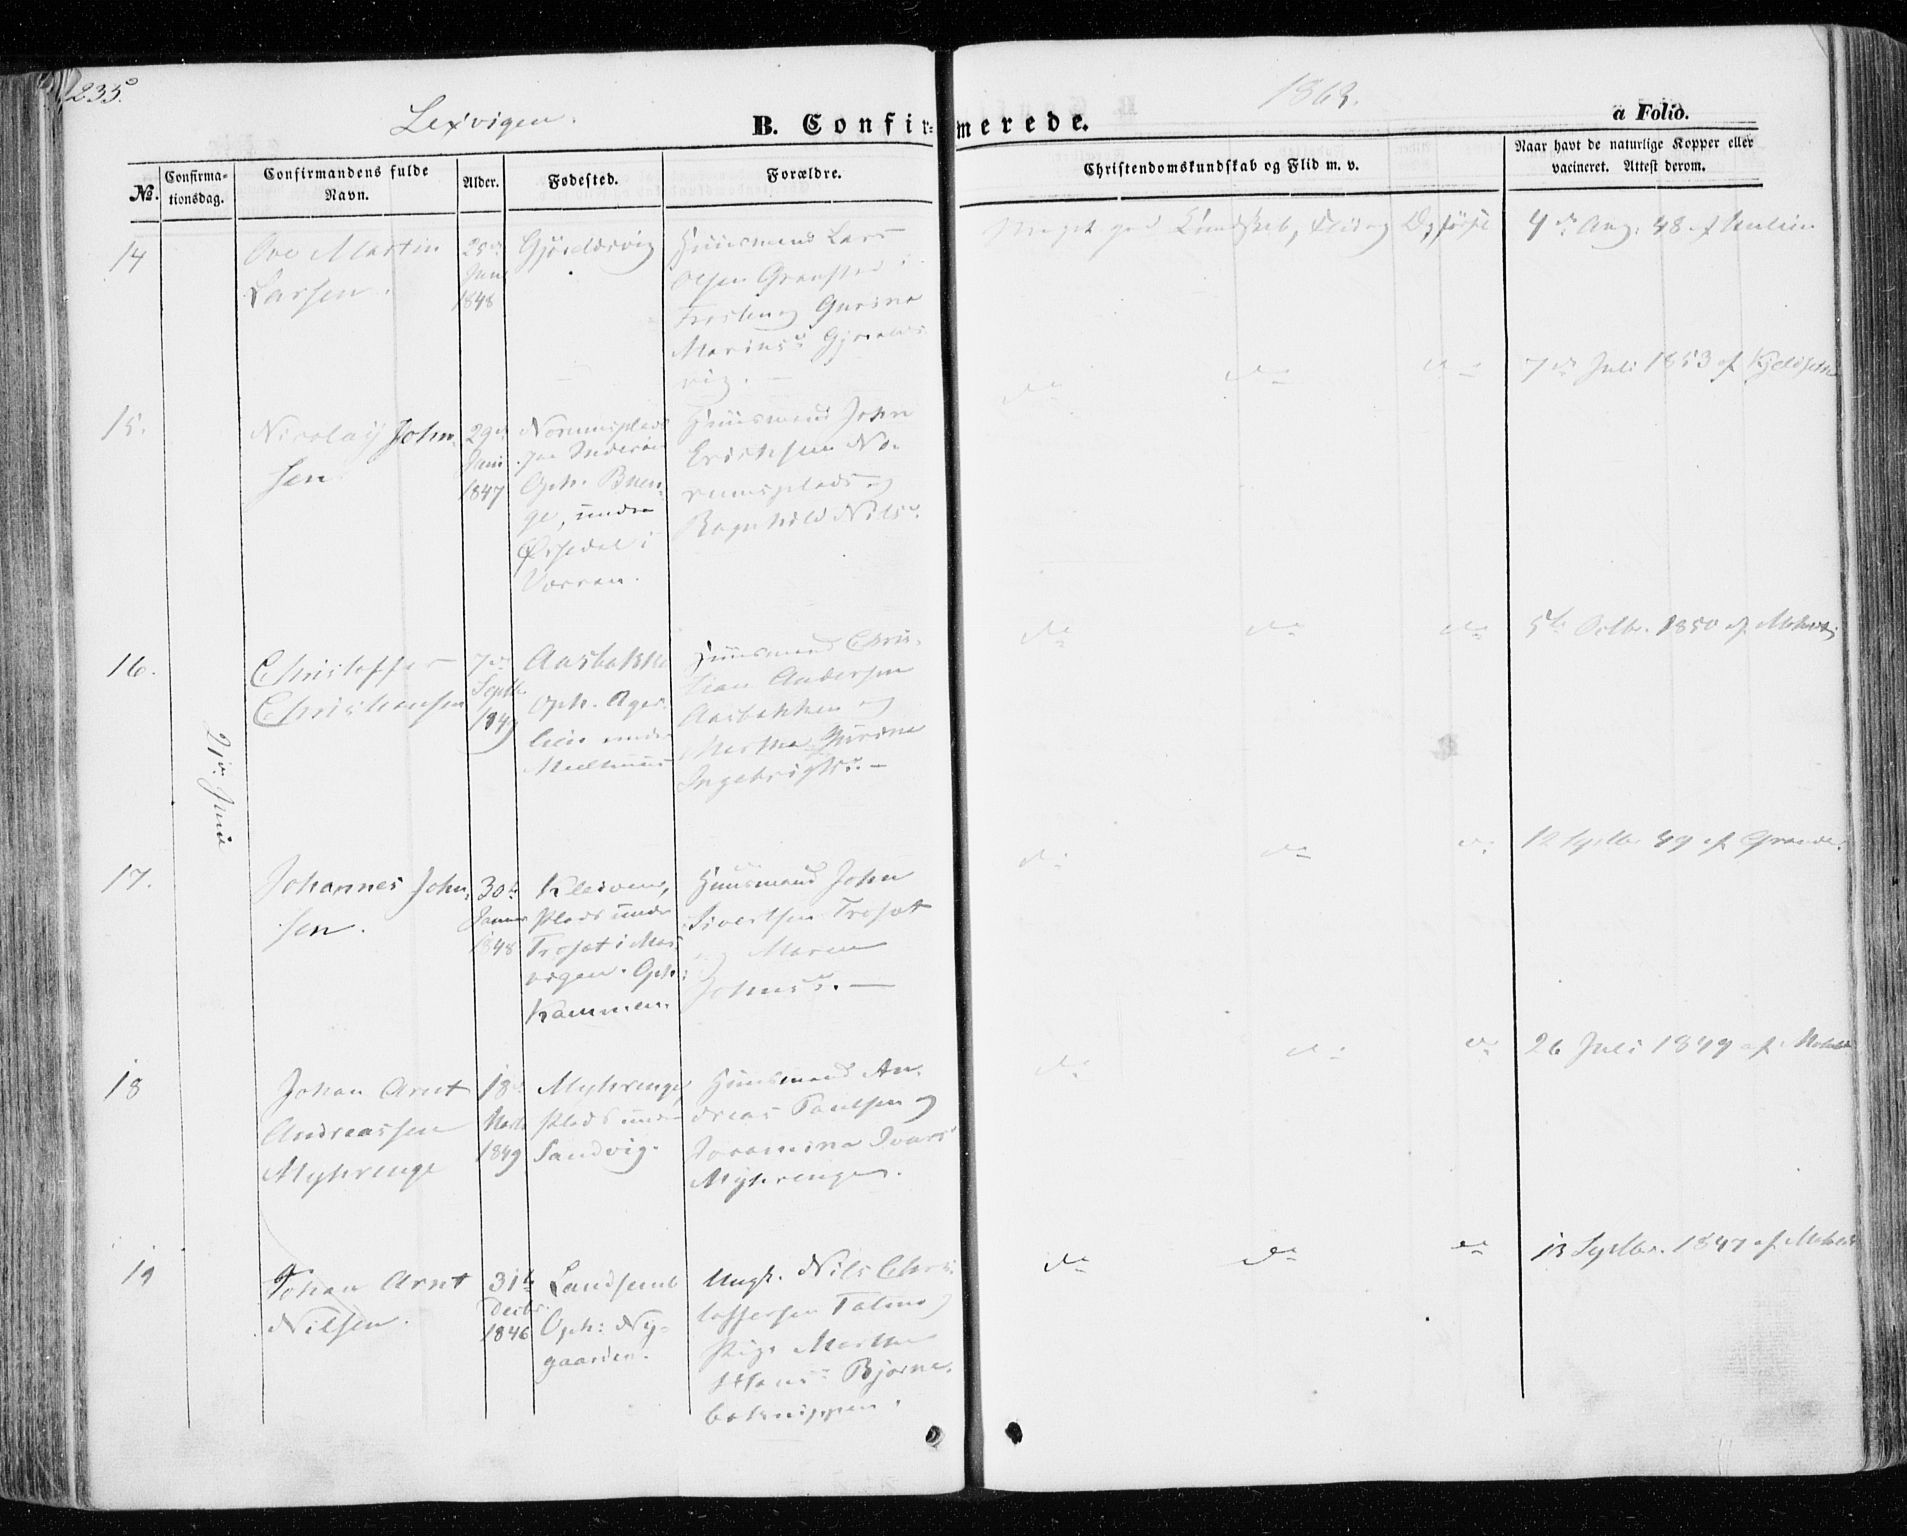 235.
Lexvigen.
1863.
B. Confirmerede.
a Folio.
No.
Confirma-
tionsdag.
Confirmandens fulde
Navn.
Alder.
Fødested.
Forældre.
Christendomskundskab og Flid m. v.
Naar havt de naturlige Kopper eller
vacineret. Attest derom.
21de Juni
14
Ove Martin
Larsen.
25de
Juni
1848
Gjeldsvig
Huusmand Lars
Olsen
Frosten og Gurina
vig.
Meget god Kundskab, Flid og Opførsel
4de Aug. 48 af
15.
Nicolay John-
sen
29de
Juni
1847
Norumsplads
paa Inderøen
Oph.
ge, under
i
Værran.
Huusmand John
Erichsen No-
rumsplads og
Ragnhild Nilsd.
do do do
7de Juli 1853 af Kjeldseth
16.
Christoffer
Christiansen
7de
Septbr
1849
Aasbakken
Oph. Ager-
lien under
Huusmand Chris-
tian Andersen
Aasbakken og
Martha Gurina
Ingebrigtsd. —
do do do
5te Octbr. 1850 af
17.
Johannes John-
sen.
30te
Januar
1848
Kleiven,
Plads under
Trosæt i Mos-
vigen. Oph:
Kammen.
Huusmand John
Sivertsen Trosæt
og Maren
Johnsd. —
do do do
12 Septbr. 49 af Grande.
18
Johan Arnt
Andreassen
Myhrenge
18de
1849
Myhrenge,
Plads under
Sandvig.
Huusmand An-
dreas Paulsen og
Ivars
Myhrenge.
do do do
26 Juli 1849 af
19
Johan Arnt
Nilsen.
31te
Decbr.
1846
Landsemb
Oph: Ny-
gaarden.
Ungk. Nils Chris-
toffersen
Pige Martha
Hansd. Bjørne-
do do do
13 Septbr. 1847 af